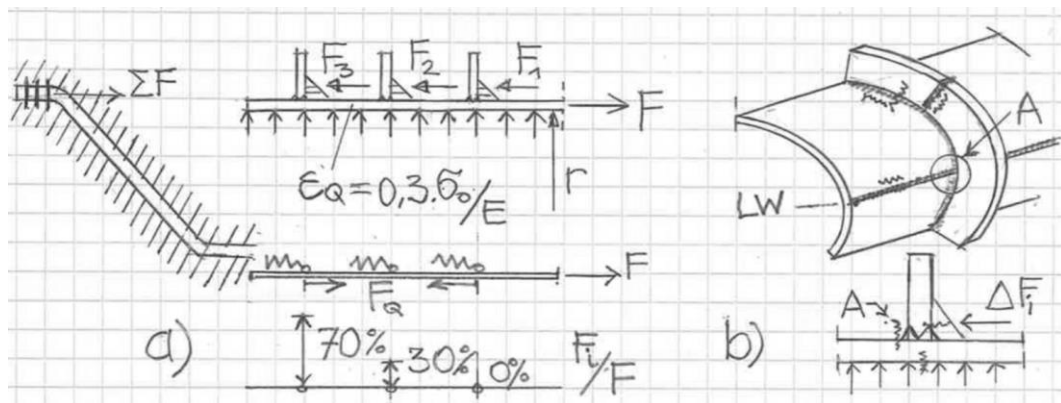 ΣF
F₃ F₂ F₁
F
εQ = 0,3.σ₀/E
r
F
FQ
a)
70% 30% 0%
Fi/F
A
LW
b)
A
ΔFi